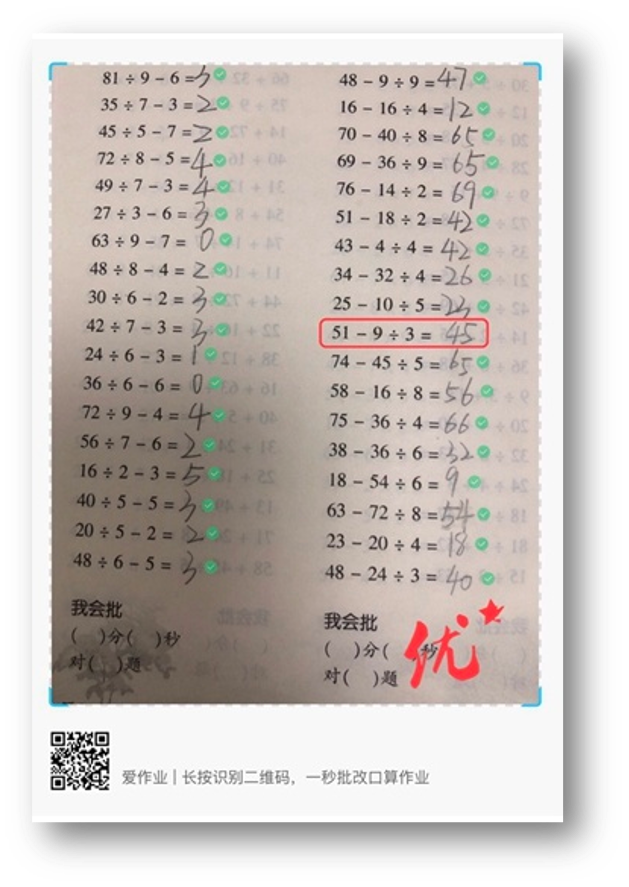 81 ÷ 9 - 6 = 3
35 ÷ 7 - 3 = 2
45 ÷ 5 - 7 = 2
72 ÷ 8 - 5 = 4
49 ÷ 7 - 3 = 4
27 ÷ 3 - 6 = 3
63 ÷ 9 - 7 = 0
48 ÷ 8 - 4 = 2
30 ÷ 6 - 2 = 3
42 ÷ 7 - 3 = 3
24 ÷ 6 - 3 = 1
36 ÷ 6 - 6 = 0
72 ÷ 9 - 4 = 4
56 ÷ 7 - 6 = 2
16 ÷ 2 - 3 = 5
40 ÷ 5 - 5 = 3
20 ÷ 5 - 2 = 2
48 ÷ 6 - 5 = 3
我会批
( )分( )秒
对( )题
48 - 9 ÷ 9 = 47
16 - 16 ÷ 4 = 12
70 - 40 ÷ 8 = 65
69 - 36 ÷ 9 = 65
76 - 14 ÷ 2 = 69
51 - 18 ÷ 2 = 42
43 - 4 ÷ 4 = 42
34 - 32 ÷ 4 = 26
25 - 10 ÷ 5 = 23
51 - 9 ÷ 3 = 45
74 - 45 ÷ 5 = 65
58 - 16 ÷ 8 = 56
75 - 36 ÷ 4 = 66
38 - 36 ÷ 6 = 32
18 - 54 ÷ 6 = 9
63 - 72 ÷ 8 = 54
23 - 20 ÷ 4 = 18
48 - 24 ÷ 3 = 40
我会批
( )分( )秒
对( )题
优
爱作业 | 长按识别二维码，一秒批改口算作业